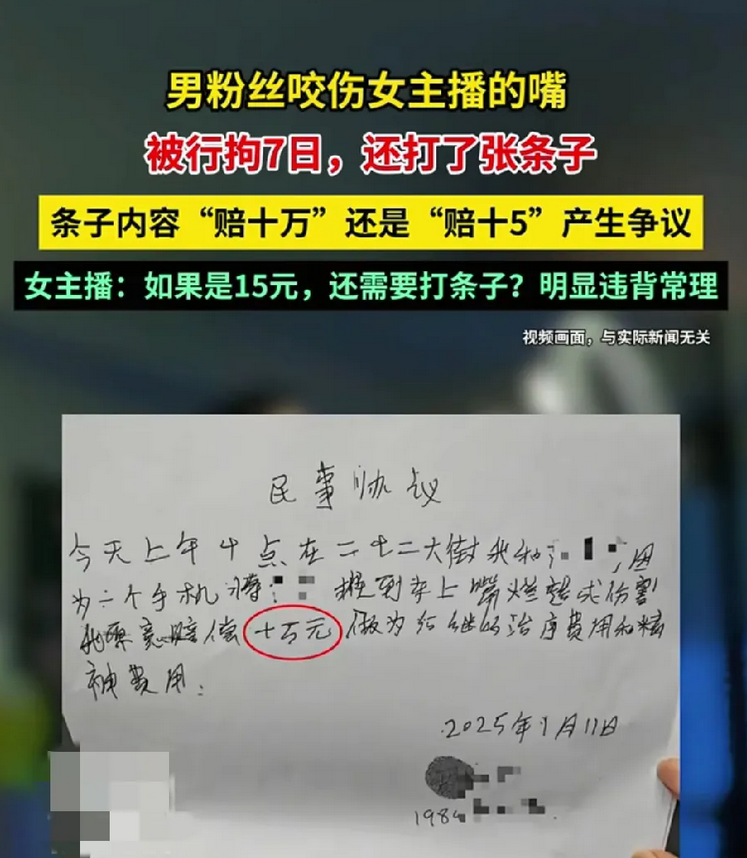 男粉丝咬伤女主播的嘴
被行拘7日，还打了张条子
条子内容“赔十万”还是“赔十5”产生争议
女主播：如果是15元，还需要打条子？明显违背常理
视频画面，与实际新闻无关
民事协议
今天上午十点在二七二大街我和
因
为二个手机 将 摁到车上嘴烂
伤割
赔偿十万元做为后继的治疗费用和精
神费用：
2025年1月11日
198